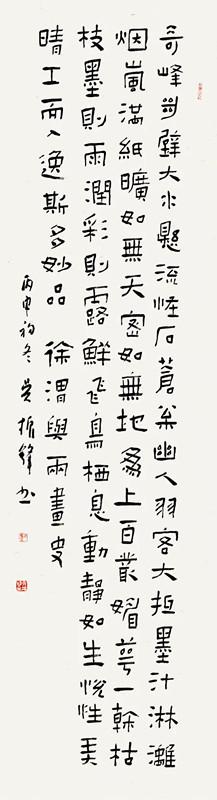 奇峰絕壁大水懸流怪石蒼松幽人羽客大抵墨汁淋灕
烟嵐滿紙曠如無天密如無地為上百叢媚萼一榦枯
枝墨則雨潤彩則露鮮飛鳥栖息動靜如生悅性弄
晴工而入逸斯為妙品 徐渭與兩畫史
丙申初冬吳振鋒書